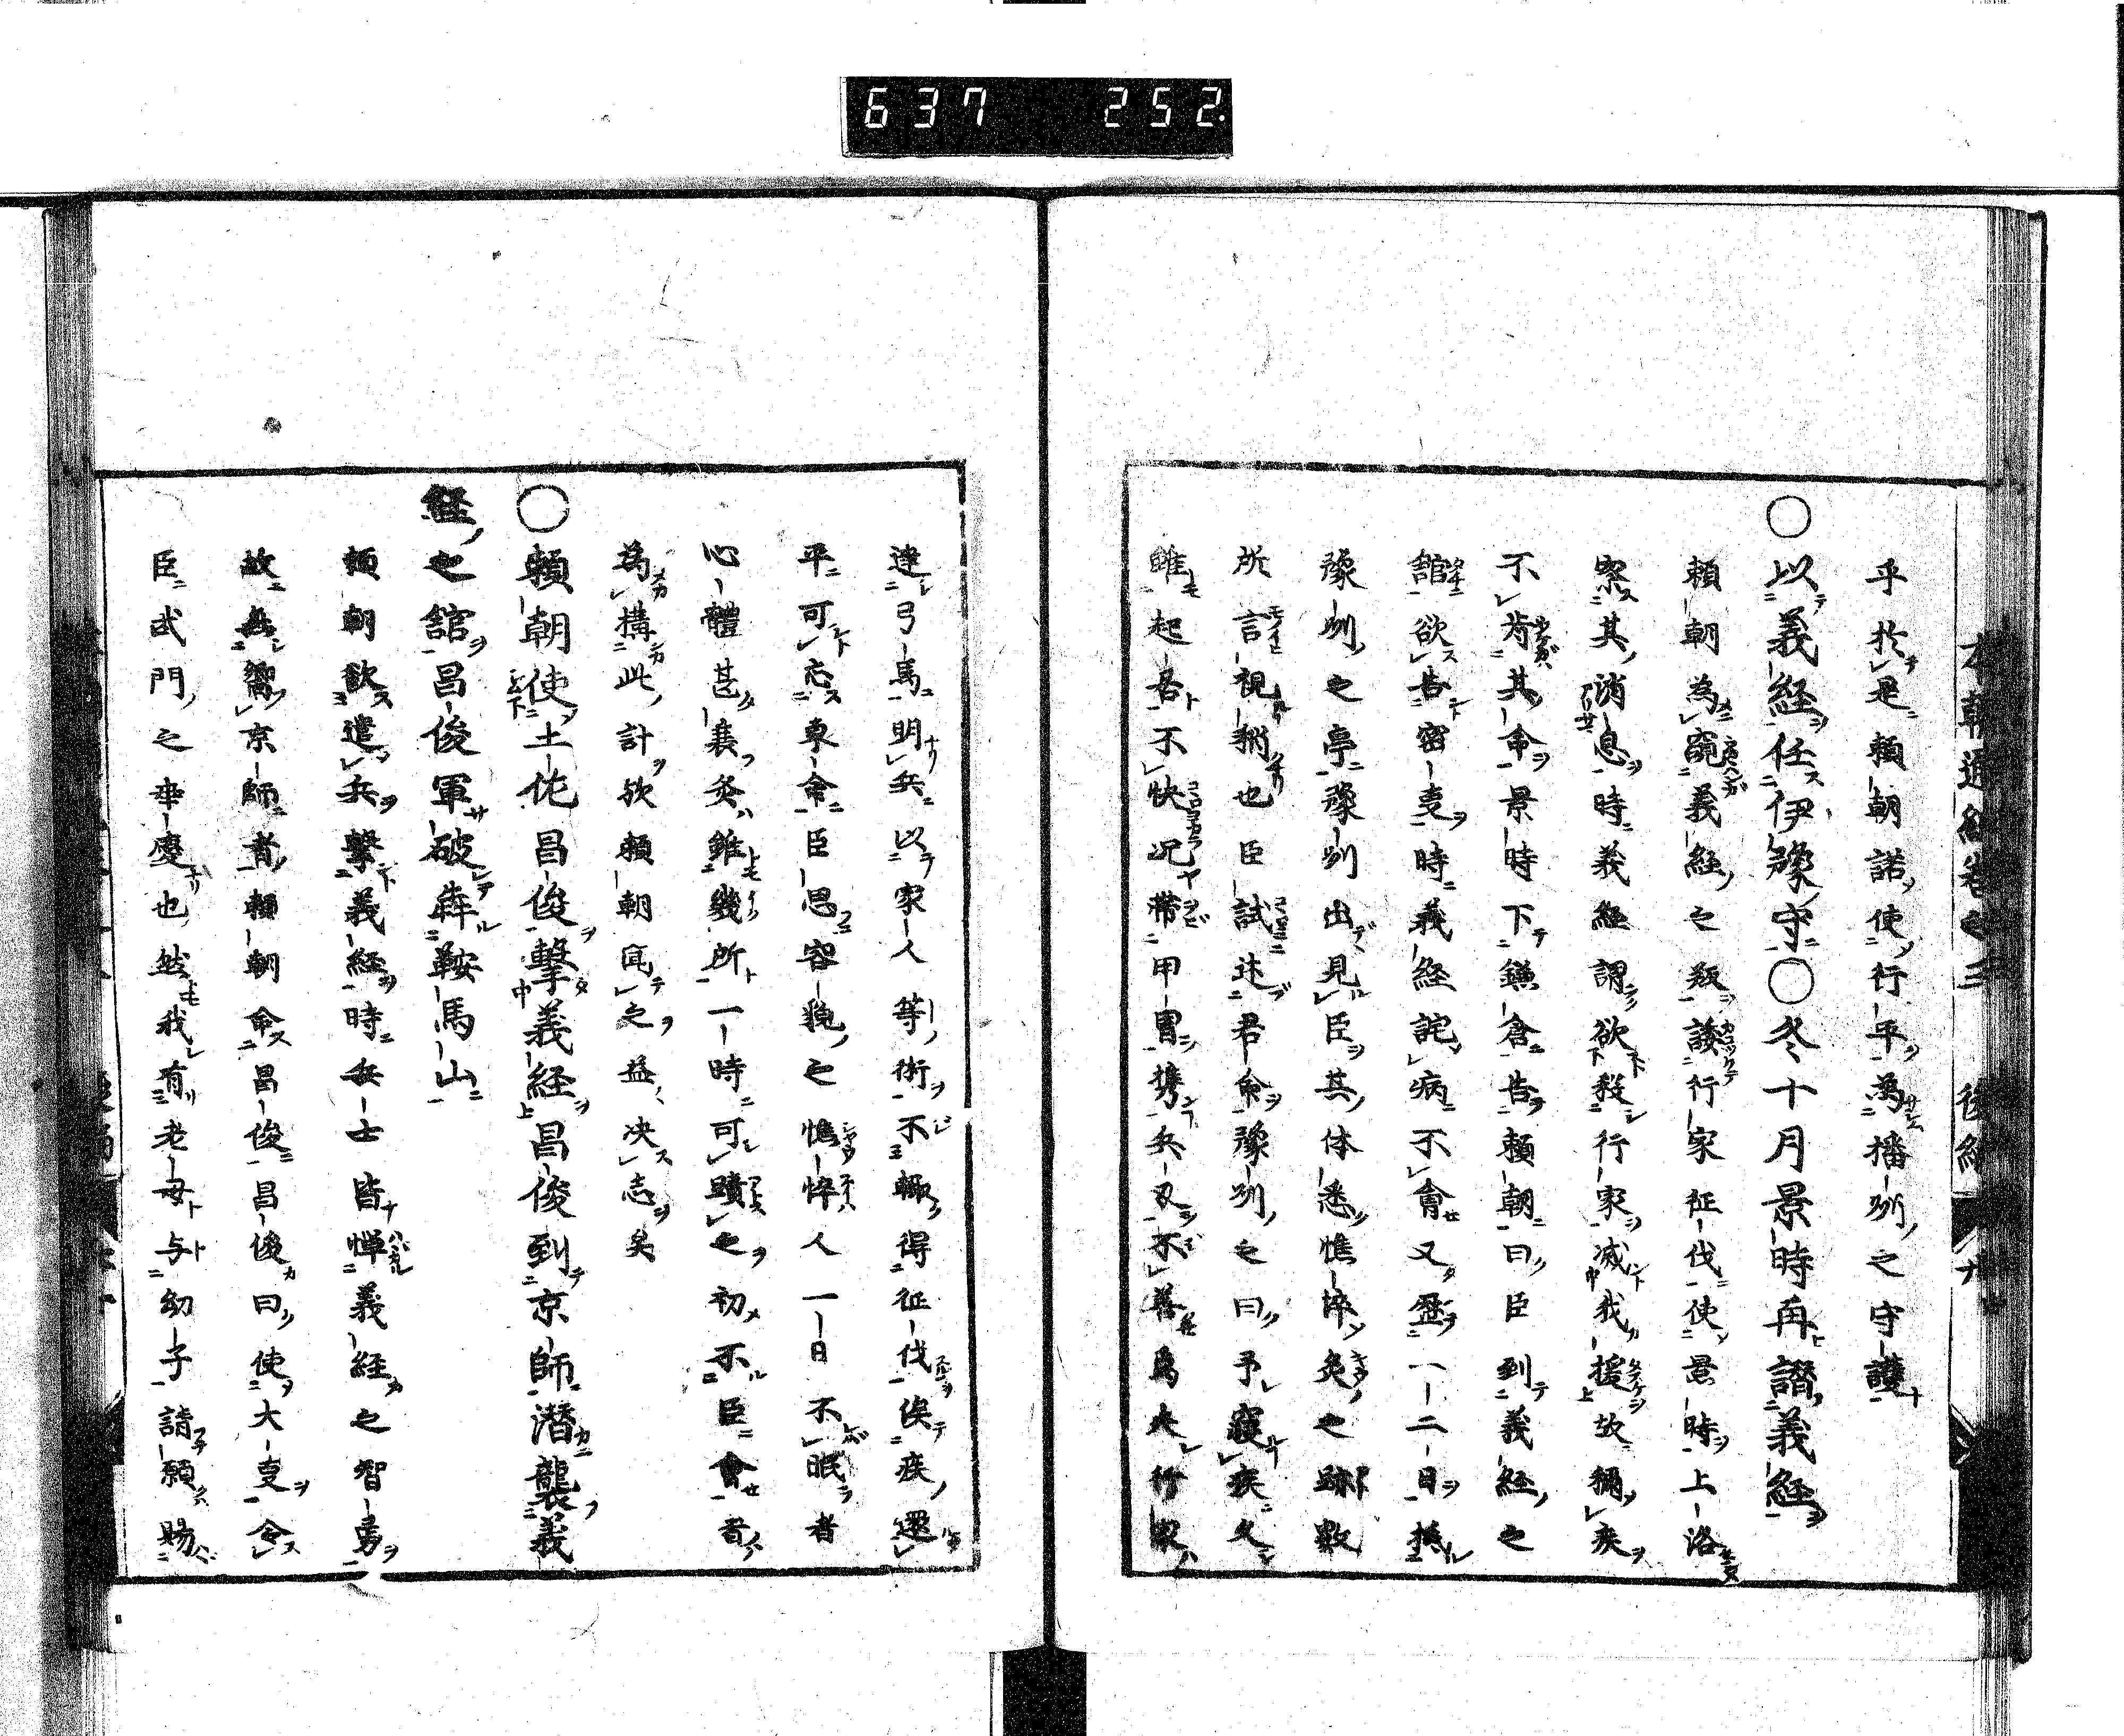 637 252
乎於是頼朝諾使行平為播州之守護
〇以義経任伊豫守〇冬十月景時再譖義経
頼朝為窺義経之叛諼行家征伐使景時上洛
察其消息時義経謂欲殺行家減我援故稱疾
不肯其命景時下鎌倉告頼朝曰臣到義経之
館欲告密事時義経詫病不會又歴一二日招
豫州之亭豫州出見臣其体悉憔悴灸之跡數
所言視痾也臣試述君命豫州之曰予寢疾久
雖起居不快况帯甲冑携兵刃不善焉夫行家
達弓馬明兵以家人等術不輙得征伐俟疾還
平可忘東命臣思容貌之憔悴人一日不眠者
心體甚衰灸雖幾所一時可蹟之初不臣會者
為構此計欤頼朝聞之益决志矣
〇頼朝使土佐昌俊撃義経昌俊到京師潜襲義
経之舘昌俊軍破奔鞍馬山
頼朝欲遣兵撃義経時兵士皆憚義経之智勇
故無嚮京師者頼朝命昌俊昌俊曰使大事令
臣武門之幸慶也然我有老母与幼子請願賜